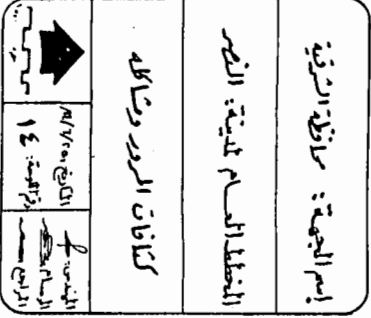 إسم الجهة: محافظة الشرقية
المخطط العام لمدينة: القصر
كثافات المرور ومشاكله
التاريخ
رقم اللوحة: ١٤
المهندس:
الرسام
المراجع